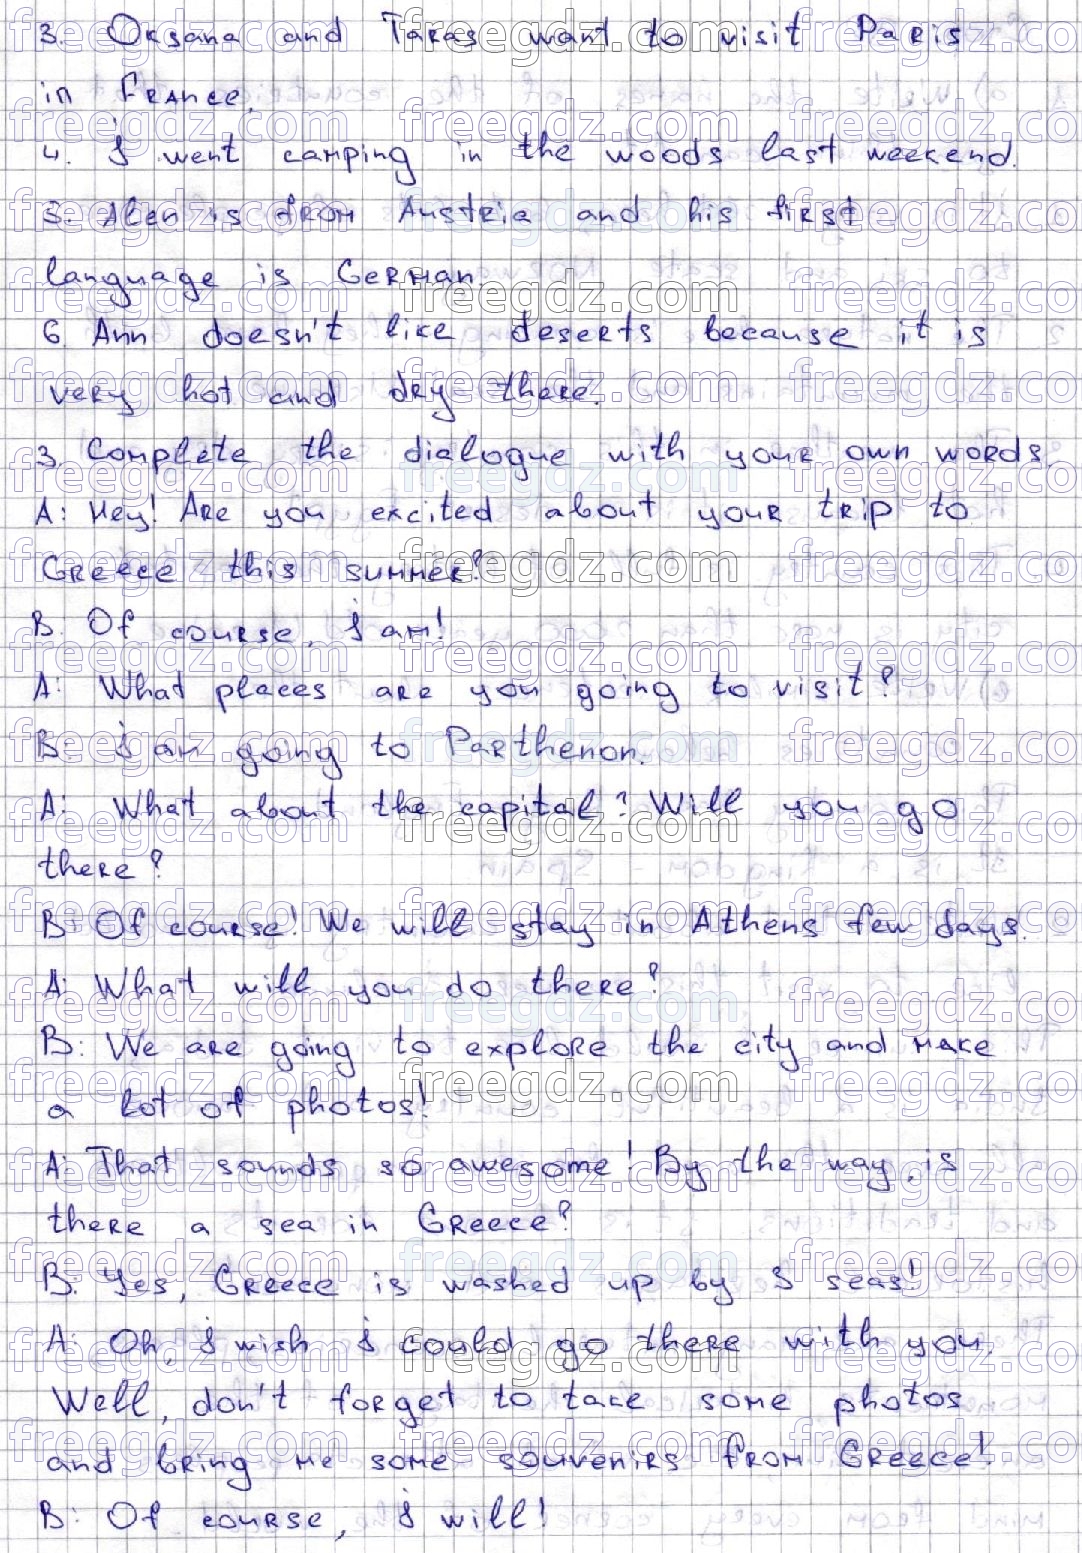 3. Oksana and Taras want to visit Paris
in France.
4. I went camping in the woods last weekend.
5. Alen is from Austria and his first
language is German.
6. Ann doesn't like deserts because it is
very hot and dry there.
3. Complete the dialogue with your own words.
A: Hey! Are you excited about your trip to
Greece this summer?
B: Of course, I am!
A: What places are you going to visit?
B: I am going to Parthenon.
A: What about the capital? Will you go
there?
B: Of course! We will stay in Athens few days.
A: What will you do there?
B: We are going to explore the city and make
a lot of photos!
A: That sounds so awesome! By the way, is
there a sea in Greece?
B: Yes, Greece is washed up by 5 seas!
A: Oh, I wish I could go there with you.
Well, don't forget to take some photos
and bring me some souvenirs from Greece!
B: Of course, I will!
freegdz.com